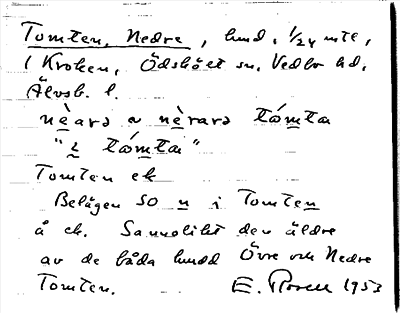 Tomten, Nedre, hmd, 1/24 mtl,
i Kroken, Ödskölt sn, Vedbo hd,
Älvsb. l.
nèarə ~ nèrarə tómta
"2 tómta"
Tomten ek
Belägen SO n i Tomten
å ek. Sannolikt den äldre
av de båda hmdd Övre och Nedre
Tomten. E. Rosell 1953